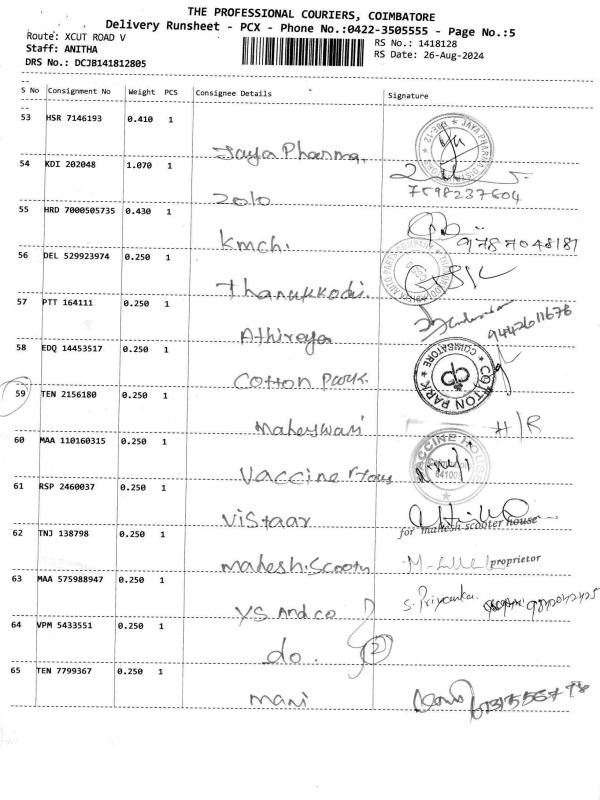 THE PROFESSIONAL COURIERS, COIMBATORE
Delivery Runsheet - PCX - Phone No.:0422-3505555 - Page No.:5
Route: XCUT ROAD V
Staff: ANITHA
DRS No.: DCJB141812805
RS No.: 1418128
RS Date: 26-Aug-2024
S No Consignment No Weight PCS Consignee Details Signature
53 HSR 7146193 0.410 1
Jaya Pharma.
JAYA PHARMA
54 KDI 202048 1.070 1
2010
7598237604
55 HRD 7000505735 0.430 1
kmch.
9787048181
56 DEL 529923974 0.250 1
Thanukkodi.
57 PTT 164111 0.250 1
Athireya
9442611676
58 EDQ 14453517 0.250 1
Cotton Park.
COTTON PARK ★ COIMBATORE ★
59 TEN 2156180 0.250 1
Maheswari
H/R
60 MAA 110160315 0.250 1
Vaccine Hous
VACCINE HOUSE
61 RSP 2460037 0.250 1
Vistaar
62 TNJ 138798 0.250 1
for mahesh scooter house
mahesh.Scootr
proprietor
63 MAA 575988947 0.250 1
YS And co
S. Priyanka
64 VPM 5433551 0.250 1
do. 2
65 TEN 7799367 0.250 1
mani